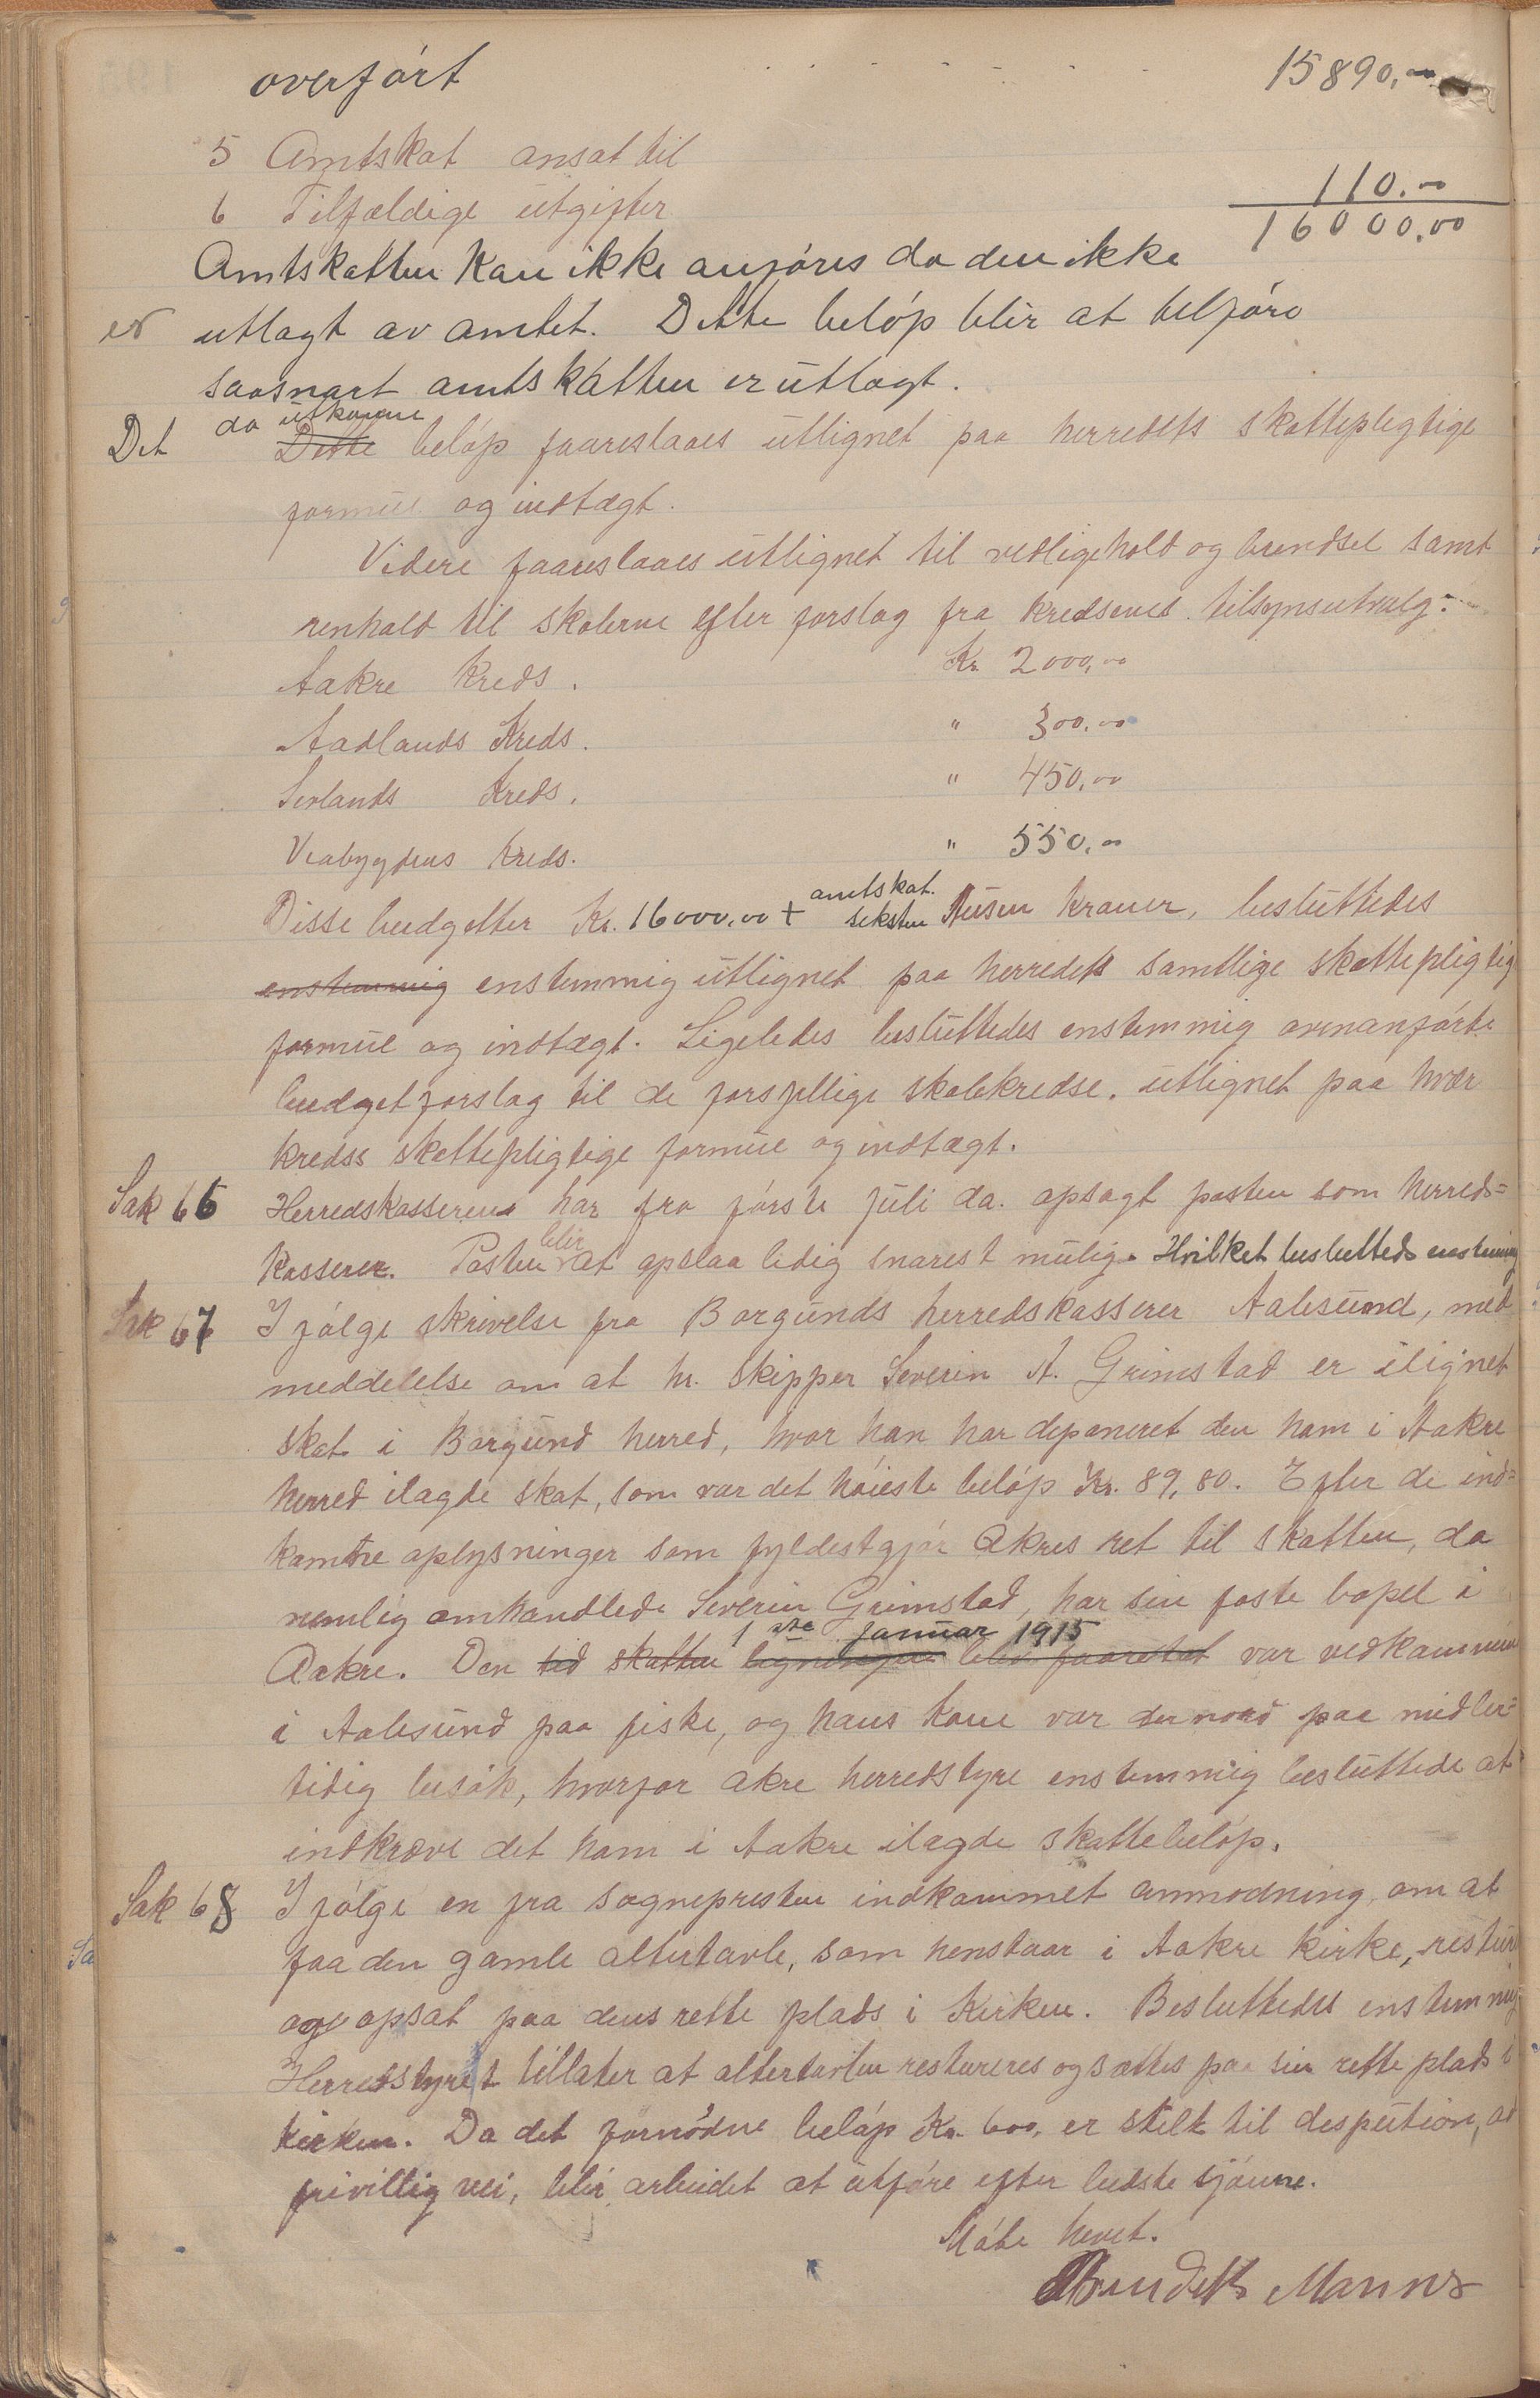 overført 15890,00
5 Amtskat ansat til
6 Tilfældige utgifter 110.00
16000,00
Amtskatten kan ikke anføres da den ikke
er utlagt av amtet. Dette beløp blir at tilføre
saasnart amtskatten er utlagt.
Det da utkomne
Dette beløp foareslaaes utlignet paa herredets skattepligtige
formue og indtægt.
Videre foareslaaes utlignet til vedligehold og brendsel samt
renhold til skolerne efter forslag fra kredsenes tilsynsutvalg:
Aakre Kreds. Kr. 2000,00
Aadlands Kreds. " 300,00
Sevlands Kreds. " 450,00
Veabygdens Kreds. " 550,00
amtskat.
Disse budgetter Kr. 16000,00 + seksten tusen kroner, besluttedes
enstemmig enstemmig utlignet paa herredets samtlige skattepligtig
formue og indtægt. Ligeledes besluttedes enstemmig ovenanførte
budgetforslag til de forsjellige skolekredse, utlignet paa hver
kredss skattepligtige formue og indtægt.
Sak 66 Herredskasseren har fra første juli da. opsagt posten som herreds=
blir
kasserer. Posten at opslaa ledig snarest mulig. Hvilket besluttedes enstemmig
Sak 67 Ifølge skrivelse fra Borgunds herredskasserer Aalesund, med
meddelelse om at hr. skipper Severin A. Grimstad er ilignet
skat i Borgund herred, hvor han har deponeret den ham i Aakre
herred ilagde skat, som var det høieste beløp Kr. 89,80. Efter de ind=
komne oplysninger som fyldestgjør Akres ret til skatten, da
nemlig omhandlede Severin Grimstad, har sin faste bopel i
1ste Januar 1915
Aakre. Den tid skatten ligningen blev foaretat var vedkommen
i Aalesund paa fiske, og hans kone var der nord paa midler=
tidig besøk, hvorfor Akre herredstyre enstemmig besluttede at
indkræve det ham i Aakre ilagde skattebeløp.
Sak 68 Ifølge en fra sognepresten indkommet anmodning, om at
faa den gamle altertavle, som henstaar i Aakre kirke, restur
og opsat paa dens rette plads i Kirken. Besluttedes enstemmig
Herredstyret tillater at altertavlen restureres og sættes paa sin rette plads i
kirken. Da det fornødne beløp Kr. 600, er stilt til despution, ad
frivillig vei, blir arbeidet at utføre efter bedste sjønne.
Møte hevet.
Bendik Mannes